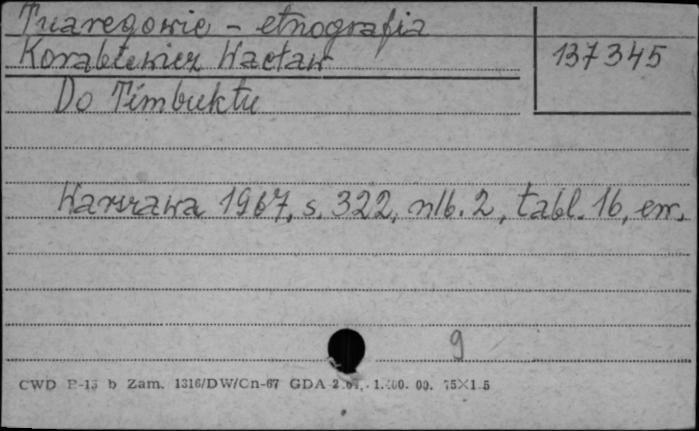 Tuaregowie - etnografia
Korabiewicz Wacław
137345
Do Timbuktu
Warszawa 1967, s. 322, nlb. 2, tabl. 16, err.
9
CWD P-15 b Zam. 1316/DW/Cn-67 GDA 00. 75×1 5